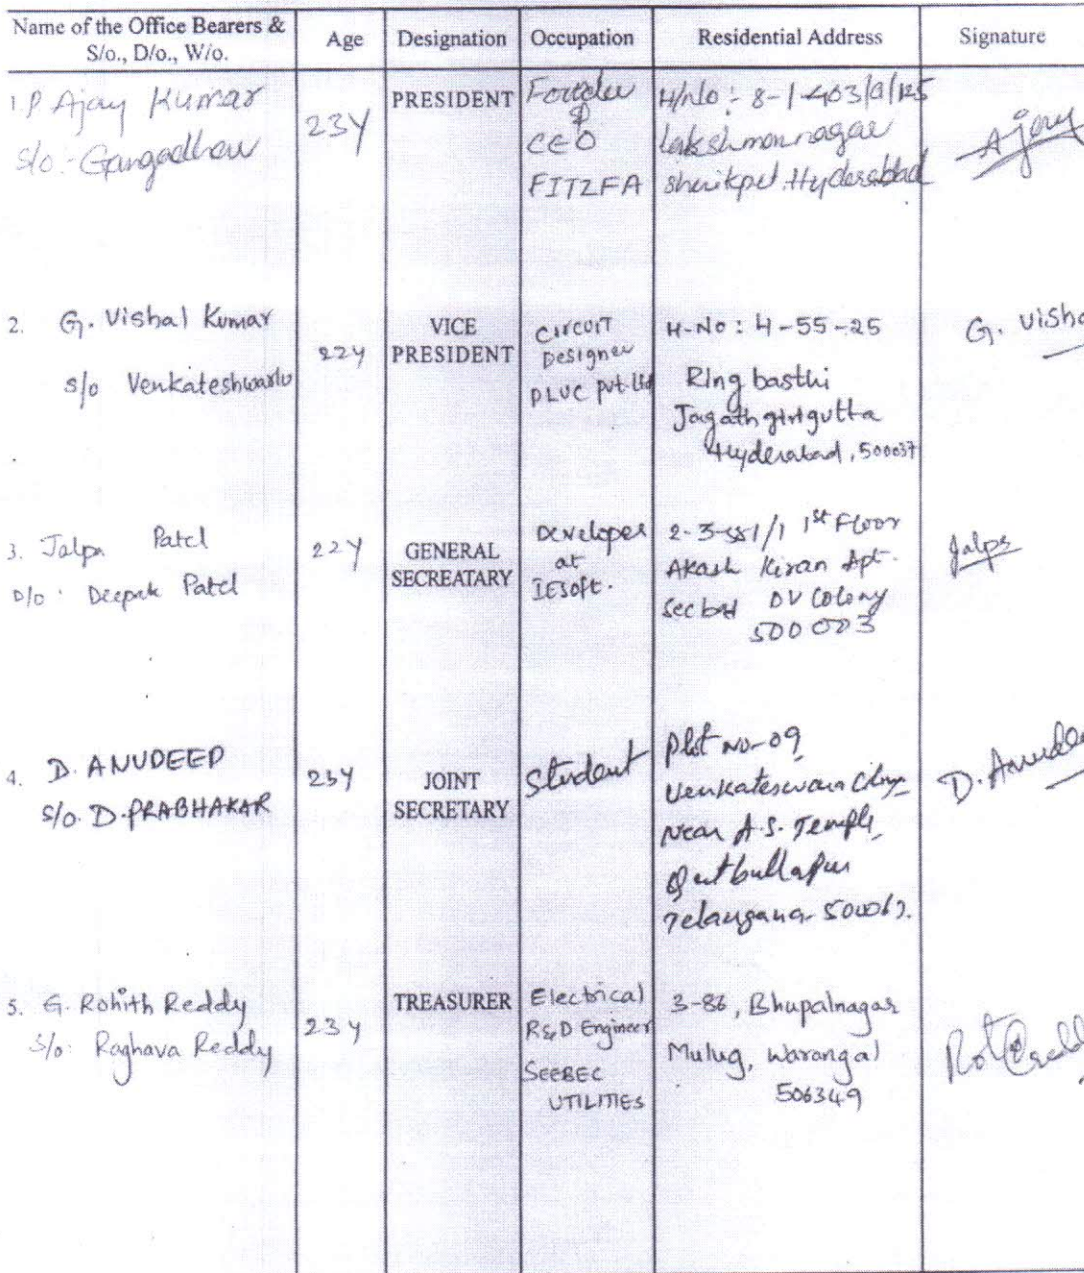 Name of the Office Bearers & S/o., D/o., W/o.
Age
Designation
Occupation
Residential Address
Signature
1. P Ajay Kumar
S/o:- Gangadhar
23Y
PRESIDENT
&
CEO
FITZFA
H/No:- 8-1-403/a/125
lakshmannagar
sheikpet Hyderabad
Ajay
2. G. Vishal Kumar
S/o Venkateshwarlu
22Y
VICE
PRESIDENT
Circuit
Designer
PLUC Pvt. Ltd
H-No: 4-55-25
Ring basthi
Jagathgirigutta
Hyderabad, 500037
G. Visha
3. Jalpa Patel
D/o: Deepak Patel
22Y
GENERAL
SECREATARY
Developer
at
IESoft.
1st Floor
Akash Kiran Apt.
Sec bad DV Colony
500003
Jalpa
4. D. ANUDEEP
S/o. D. PRABHAKAR
23Y
JOINT
SECRETARY
Student
Plot No-09
Venkateswara
Near A.S. Temple,
Qutbullapur
Telangana-
D. Anudee
5. G. Rohith Reddy
S/o: Raghava Reddy
23Y
TREASURER
Electrical
R&D Engineer
SEEBEC
UTILITIES
3-86, Bhupalnagar
Mulug, Warangal
506349